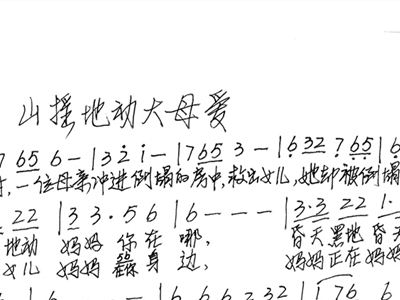 山摇地动大母爱
7 65 6 - | 3 2 i - | 7 65 3 - | 6 32 7 65 | 6
时,一位母亲冲进倒塌的房中,救出女儿,她却被倒塌
22 | 3 3·5 6 | 6 - - - | 3·3 22 1·
地动 妈妈 你在 哪, 昏天黑地 昏天
女儿 妈妈 身 边, 妈妈正在妈妈